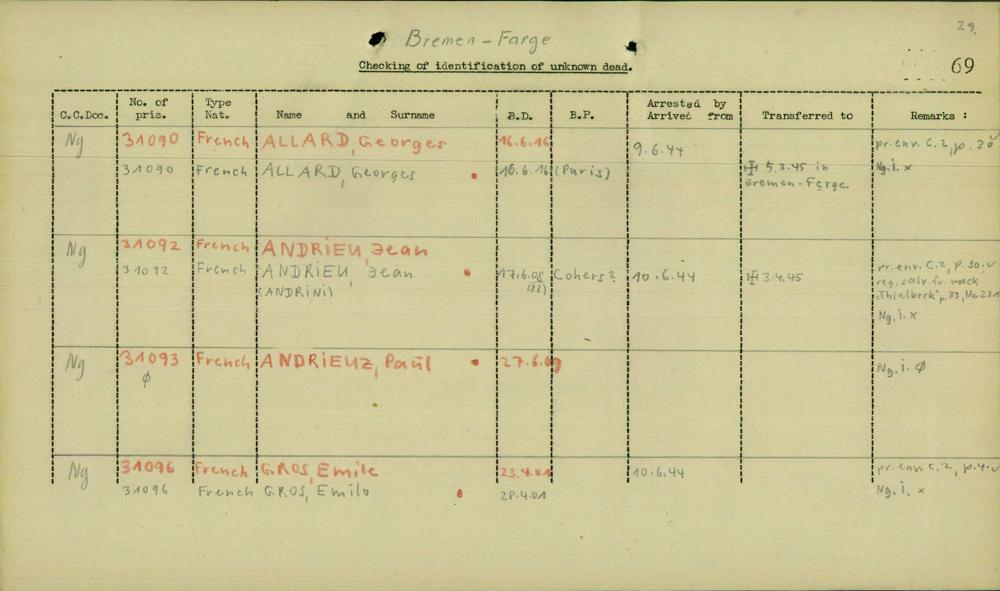 29.
Bremen-Farge
Checking of identification of unknown dead.
69
C.C.Doc. No. of pris. Type Nat. Name and Surname B.D. B.P. Arrested by Arrived from Transferred to Remarks :
Ng 31090 French ALLARD, Georges 16.6.16 9.6.44 pr.env. C.2, p.
31090 French ALLARD, Georges 16.6.16 (Paris) 5.3.45 in Ng.i. x
Bremen-Farge.
Ng 31092 French ANDRIEU, Jean
31092 French ANDRIEU, Jean 17.6.08 Cohers? 10.6.44 3.4.45 pr.env. C.2, p.30.
(ANDRINI) reg. salv. fr. wreck
"Thielbeck" p.33, No.
Ng.i. x
Ng 31093 French ANDRIEUZ, Paul 27.6.09 Ng.i. Ø
Ø
Ng 31096 French GROS, Emile 23.4.01 10.6.44 pr.env. C.2, p.4.
31096 French GROS, Emile 28.4.01 Ng.i. x